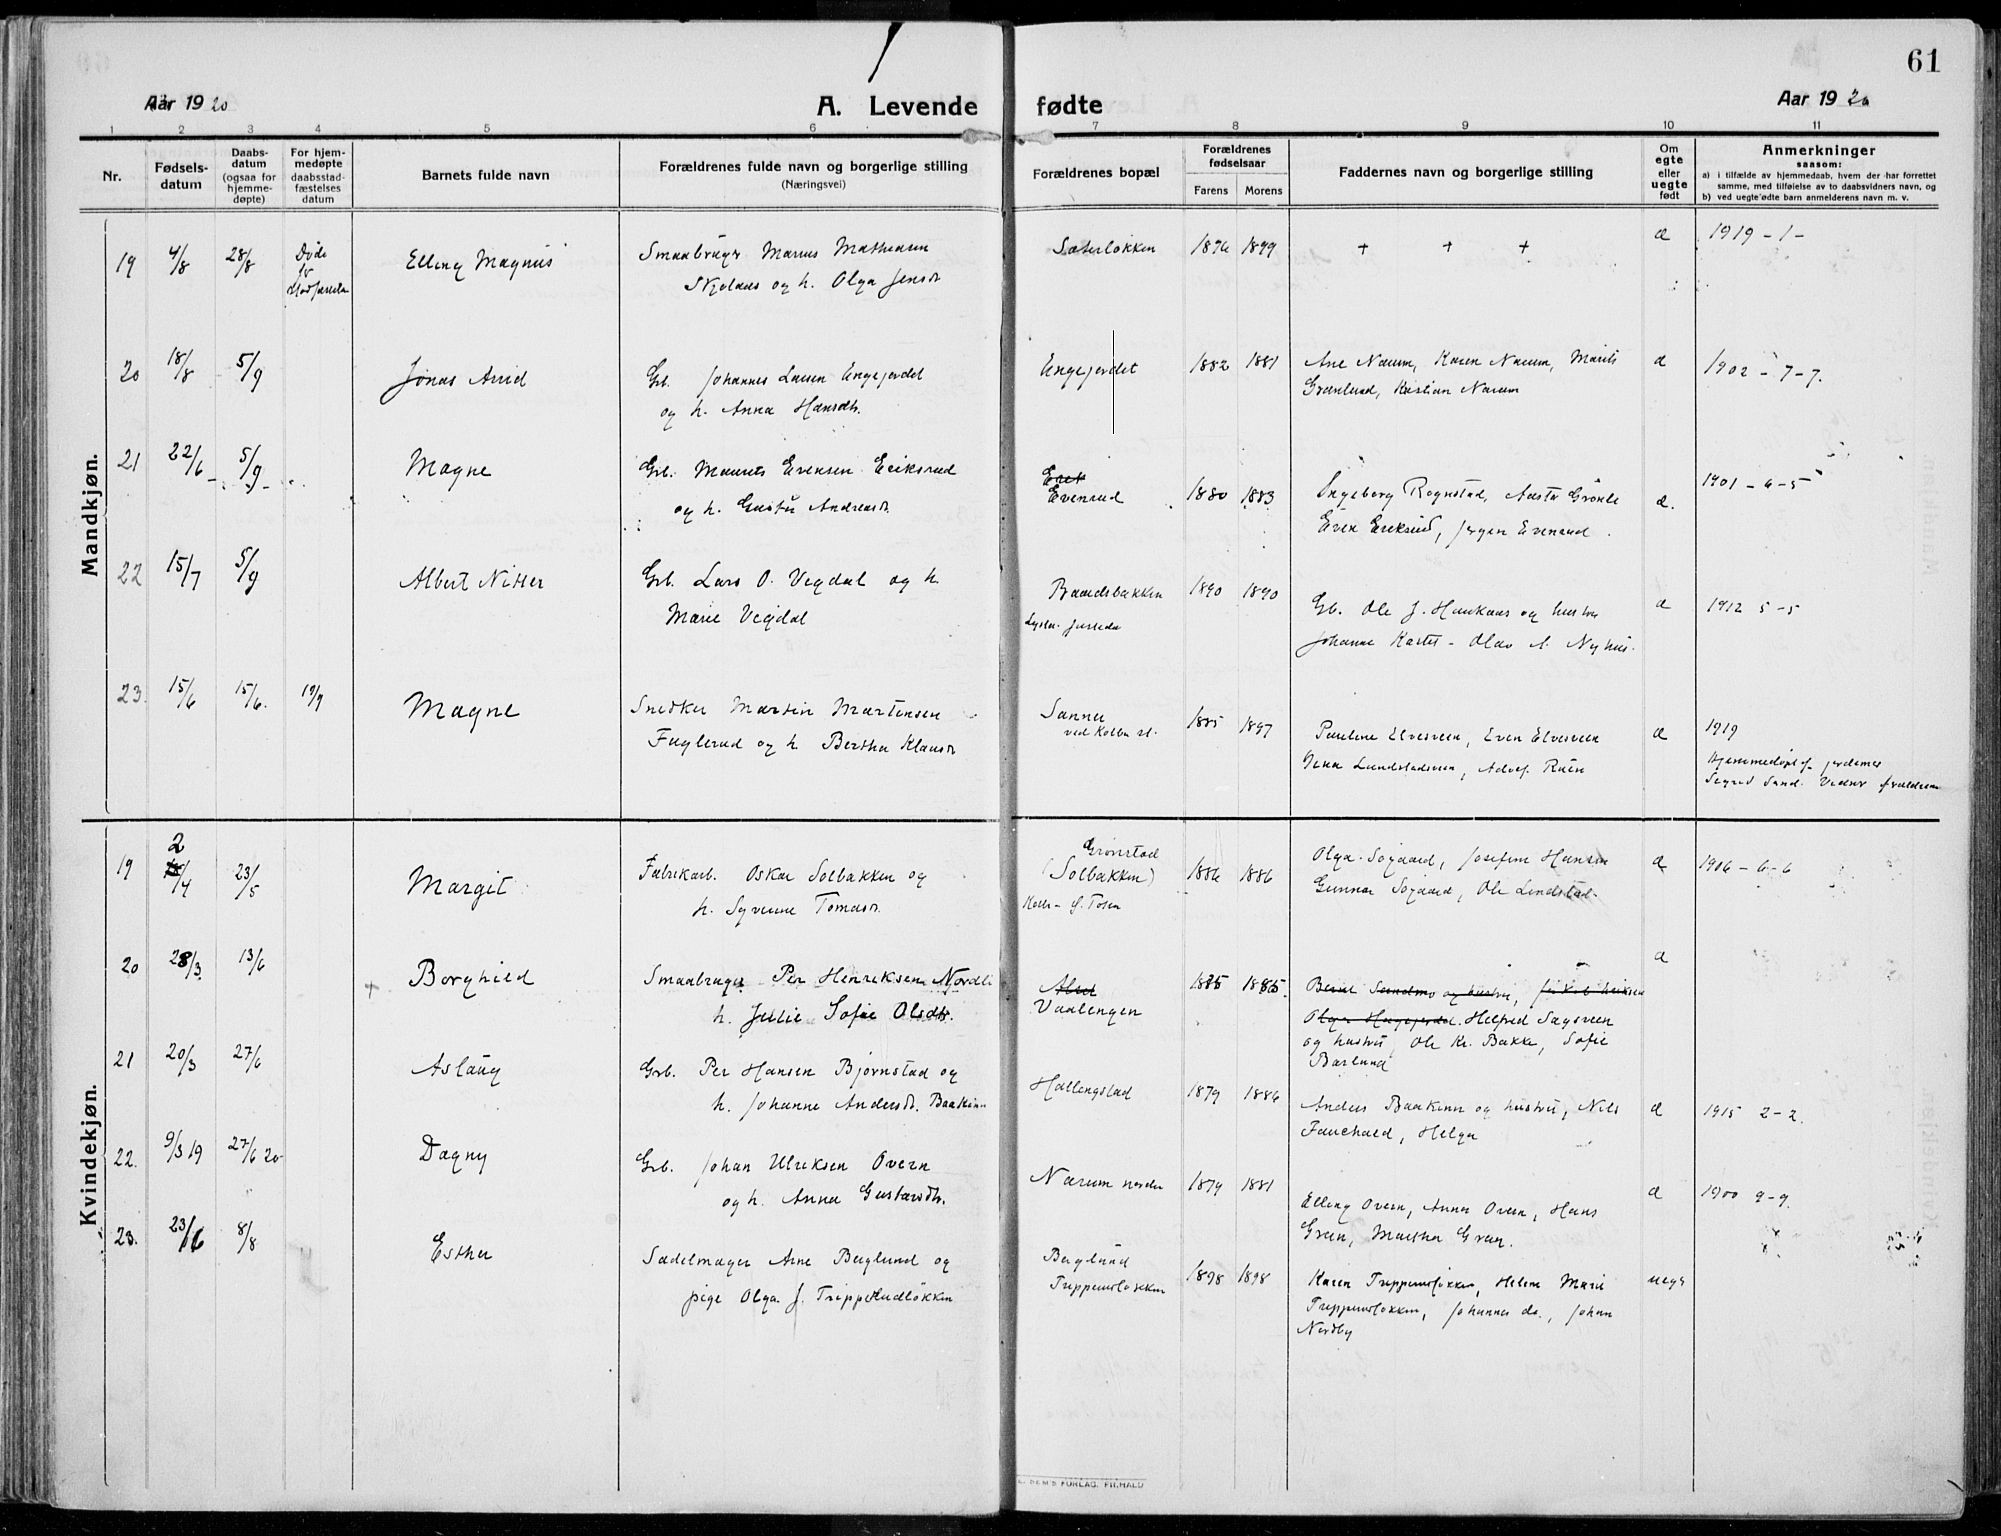 61
Aar 1920
A. Levende fødte
Aar 1920
1 2 3 4 5 6 7 8 9 10 11
Nr.
Fødsels-
datum
Daabs-
datum
(ogsaa for
hjemme-
døpte)
For hjem-
medøpte
daabsstad-
fæstelses
datum
Barnets fulde navn
Forældrenes fulde navn og borgerlige stilling
(Næringsvei)
Forældrenes bopæl
Forældrenes
fødselsaar
Farens Morens
Faddernes navn og borgerlige stilling
Om
egte
eller
uegte
født
Anmerkninger
saasom:
a) i tilfælde av hjemmedaab, hvem der har forrettet
samme, med tilføielse av to daabsvidners navn, og
b) ved uegte fødte barn anmelderens navn m. v.
Mandkjøn.
19 4/8 28/8 Døde før Elling Magnus Smaabruger Marius Mathisen Sæterløkken 1896 1899 + + + æ 1919 - 1 -
og h. Olga Jensdt
20 18/8 5/9 Jonas Arvid Grb. Johannes Larsen Engejordet Engejordet 1882 1881 Ane Narum, Karen Narum, Marit æ 1902 - 7 - 7.
og h. Anna Hansdtr. Grønlund, Kristian Narum
21 22/6 5/9 Magne Grb. Eriksen Eriksrud Evenrud 1880 1883 Ingeborg Rognstad, Aasta æ. 1901 - 6 - 5
og h. Andreasdt. Even Eriksrud, Jørgen Evenrud
22 15/7 5/9 Albert Grb. Lars O. Vegdal og h. Baardsbakken 1890 1890 Gb. Ole J. Haukaas og hustru æ 1912 5 - 5
Marie Vegdal Johanne - Olav A. Nyhus.
23. 15/6 15/6. 19/9 Magne Snedker Martin Martinsen Sanner 1885 1897 Pauline Elvesveen, Even Elvesveen æ 1919
Fuglerud og h Bertha Klausdt ved Kolbu st. Lundstadsveen, Adolf Hjemmedøpt af jordemor
Sand. Vidner forældrene
Kvindekjøn.
19 2/4 23/5 Margit Fabrikarb. Oskar Solbakken og Grønstad (Solbakken) 1886 1886 Olga Sogaard, Josefine Hansen æ 1906 - 6 - 6
h. Tomasdt. Gunnar Sogaard, Ole Lindstad.
20 28/3 13/6 + Borghild Smaabruger Per Henriksen Nordli Vaalengen 1885 1885. og hustru, æ
h. Julie Sofie Olsdtr. Helfred Sagsveen
og hustru, Ole Kr. Bakke, Sofie
21 20/3 27/6 Aslaug Grb. Per Hansen Bjørnstad og Hallengstad 1879 1886 Anders Baakinn og hustru, Nils æ 1915 2 - 2.
h. Johanne Andersdt. Baakinn Fauchald, Helga
22. 9/3 19 27/6 20 Dagny Grb. Johan Ulriksen Overn Narum nordre 1879 1881 Elling Overn, Anna Overn, Hans æ 1900 9 - 9.
og h. Anna Gustavsdtr. Gran, Martha Gran.
23. 23/6 8/8 Esther Sadelmager Arne Berglund og Berglund 1898 1898 Karen Trippenusløkken, Helene Marie uegt
pige Olga J. Trippenusløkken Johannes do., Johan
Nordby